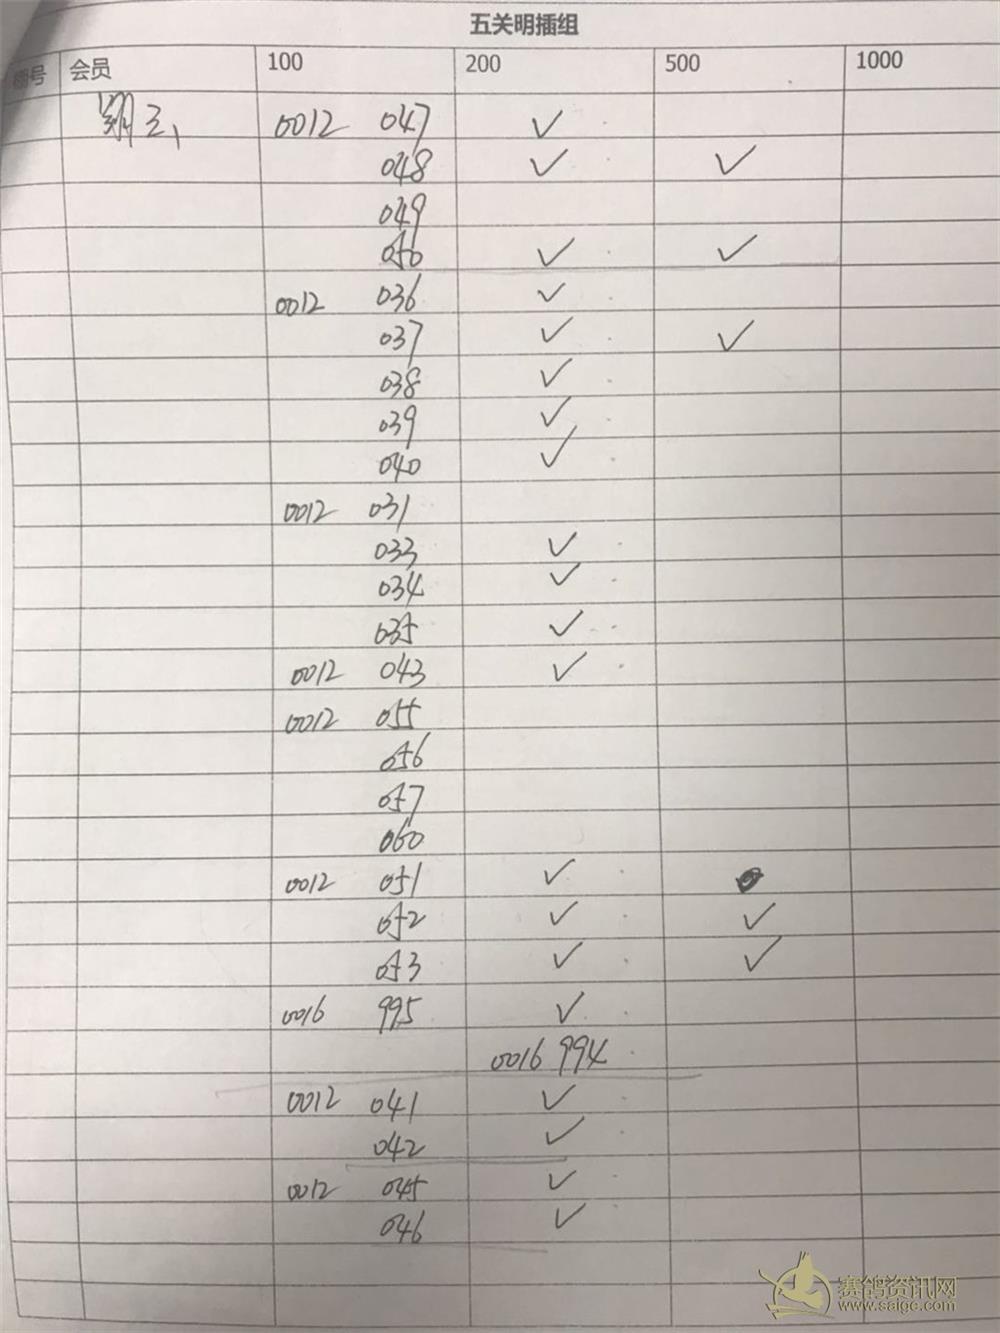 五关明插组
棚号 会员 100 200 500 1000
0012 047 ✓
048 ✓ ✓
049
050 ✓ ✓
0012 036 ✓
037 ✓ ✓
038 ✓
039 ✓
040 ✓
0012 031
033 ✓
034 ✓
035 ✓
0012 043 ✓
0012 055
056
057
060
0012 051 ✓
052 ✓ ✓
053 ✓ ✓
0016 995 ✓
0016 994
0012 041 ✓
042 ✓
0012 045 ✓
046 ✓
赛鸽资讯网
www.saige.com